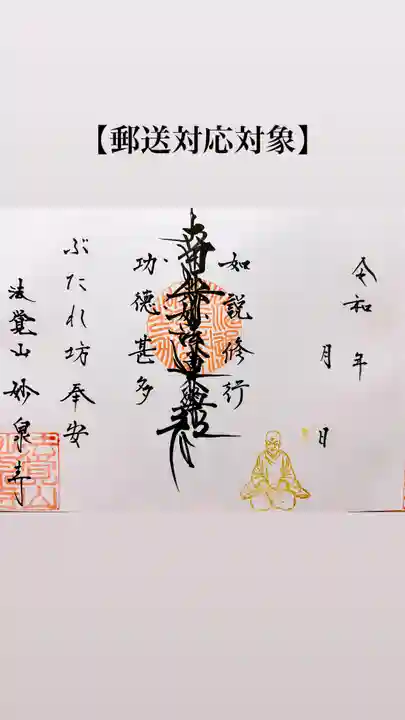 【郵送対応対象】
令和 年
月 日
如説修行
南無妙法蓮華経
功徳甚多
ぶたれ坊奉安
法覚山 妙泉寺